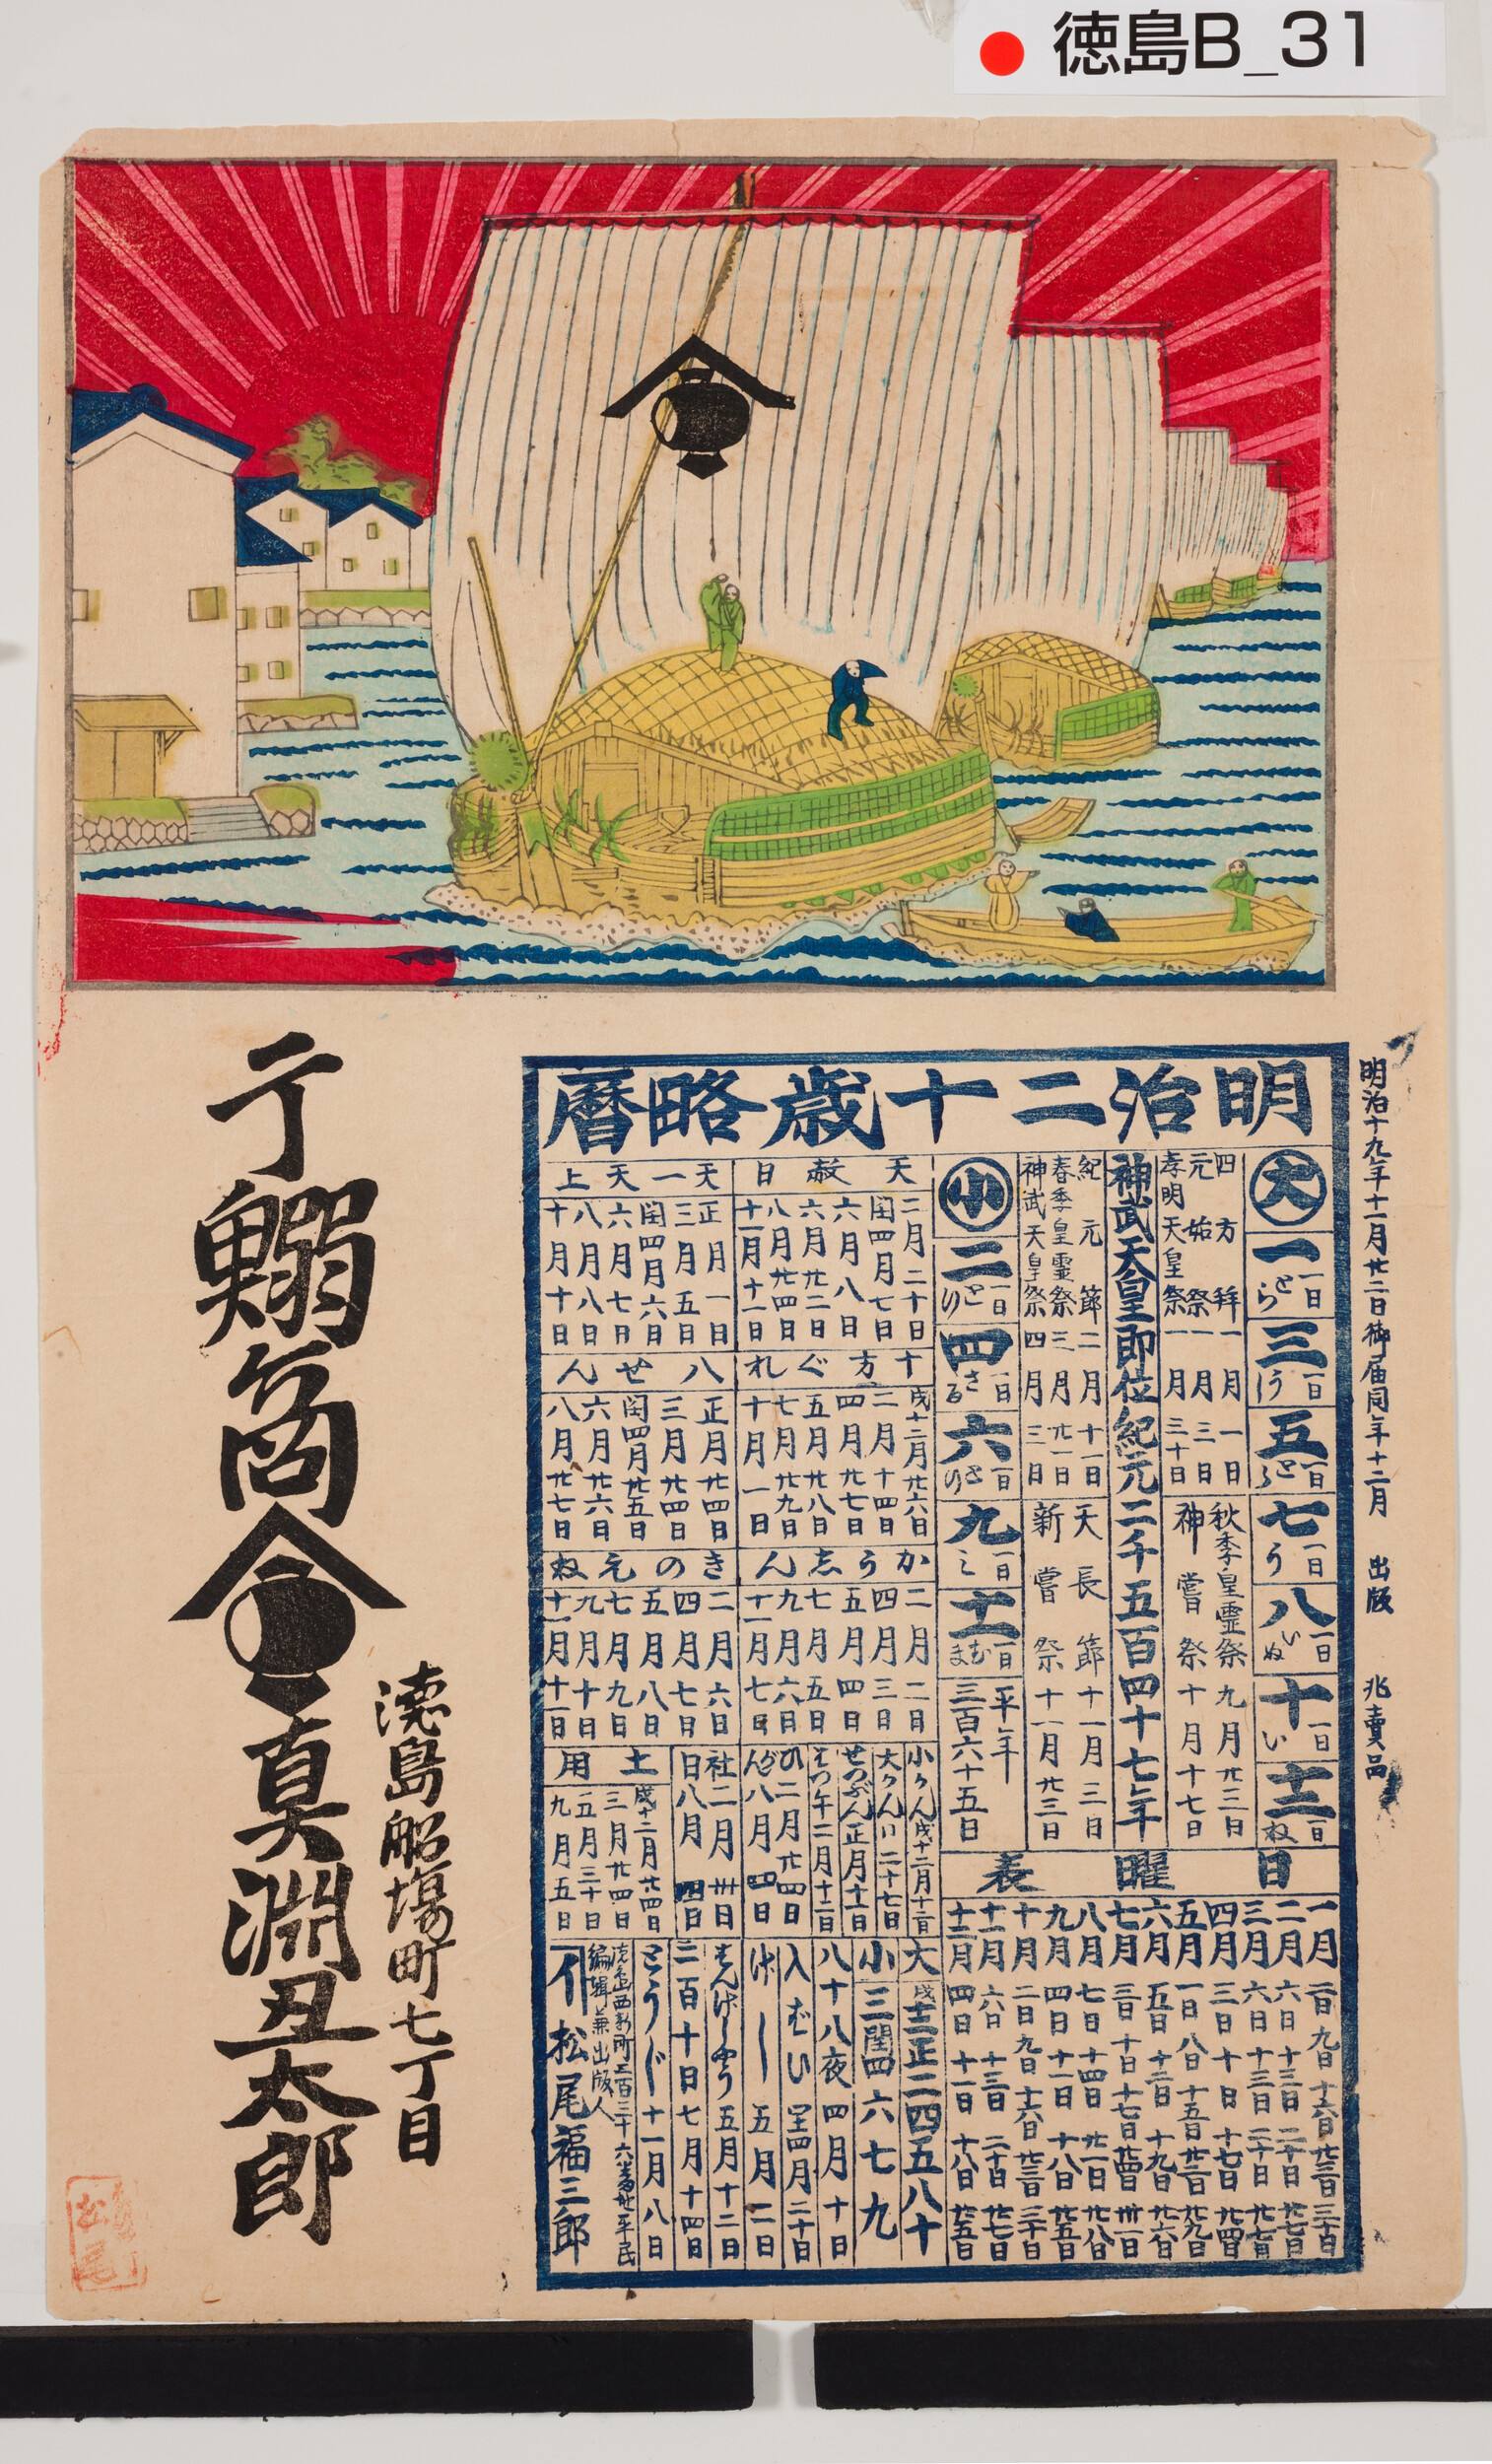 徳島B_31
明治十九年十一月廿二日御届同年十二月 出版 非賣品
明治二十歳略暦
大
一 一日 とら
三 一日 う
五 一日 とら
七 一日 う
八 一日 いぬ
十 一日 い
十二 一日 ね
四方拝 一月一日
元始祭 一月三日
孝明天皇祭 一月三十日
秋季皇霊祭 九月廿三日
神嘗祭 十月十七日
神武天皇即位紀元二千五百四十七年
紀元節 二月十一日
春季皇霊祭 三月廿一日
神武天皇祭 四月三日
天長節 十一月三日
新嘗祭 十一月廿三日
小
二 一日 とり
四 一日 さる
六 一日 とり
九 一日 み
十一 一日 むま
平年
三百六十五日
日曜表
一月 二日 九日 十六日 廿三日 三十日
二月 六日 十三日 二十日 廿七日
三月 六日 十三日 二十日 廿七日
四月 三日 十日 十七日 廿四日
五月 一日 八日 十五日 廿二日 廿九日
六月 五日 十二日 十九日 廿六日
七月 三日 十日 十七日 廿四日 卅一日
八月 七日 十四日 廿一日 廿八日
九月 四日 十一日 十八日 廿五日
十月 二日 九日 十六日 廿三日 三十日
十一月 六日 十三日 二十日 廿七日
十二月 四日 十一日 十八日 廿五日
天赦日
二月二十日
閏四月七日
六月八日
六月廿二日
八月廿四日
十一月十一日
天一天上
正月一日
三月五日
閏四月六日
六月七日
八月八日
十月十日
十方ぐれ
戌十二月廿六日
二月十四日
四月廿七日
五月廿八日
七月廿九日
十月一日
八せん
正月廿四日
三月廿四日
閏四月廿五日
六月廿六日
八月廿七日
かうしん
二月二日
四月三日
五月四日
七月五日
九月六日
十一月七日
きのえね
二月六日
四月七日
五月八日
七月九日
九月十日
十一月十一日
小かん戌十二月十二日
大かん〃二十七日
せつぶん正月十一日
はつ午二月十二日
ひがん
二月廿四日
八月四日
社日
二月卅日
八月四日
土用
戌十二月廿四日
三月廿四日
五月三十日
九月五日
大 戌十二正二四五八十
小 三閏四六七九
八十八夜 四月十日
入ばい 閏四月二十日
げしー 五月二日
はんげしやう 五月十二日
二百十日 七月十四日
とうじー 十一月八日
編輯兼出版人
松尾福三郎
鰯商
真淵丑太郎
徳島船場町七丁目